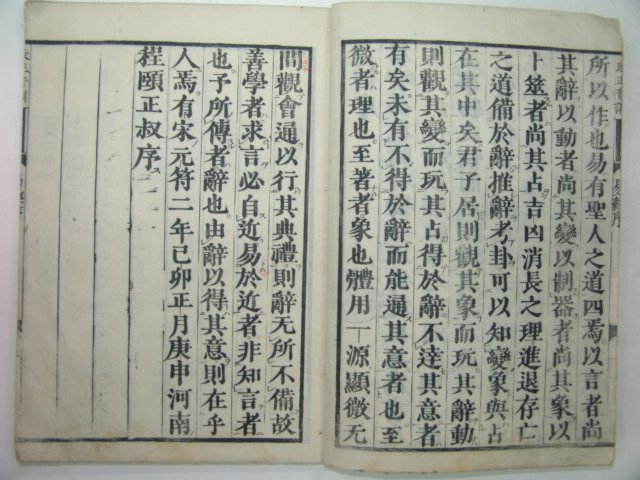 所以作也易有聖人之道四焉以言者尚
其辭以動者尚其變以制器者尚其象以
卜筮者尚其占吉凶消長之理進退存亡
之道備於辭推辭考卦可以知變象與占
在其中矣君子居則觀其象而玩其辭動
則觀其變而玩其占得於辭不達其意者
有矣未有不得於辭而能通其意者也至
微者理也至著者象也體用一源顯微无
間觀會通以行其典禮則辭无所不備故
善學者求言必自近易於近者非知言者
也予所傳者辭也由辭以得其意則在乎
人焉有宋元符二年己卯正月庚申河南
程頤正叔序